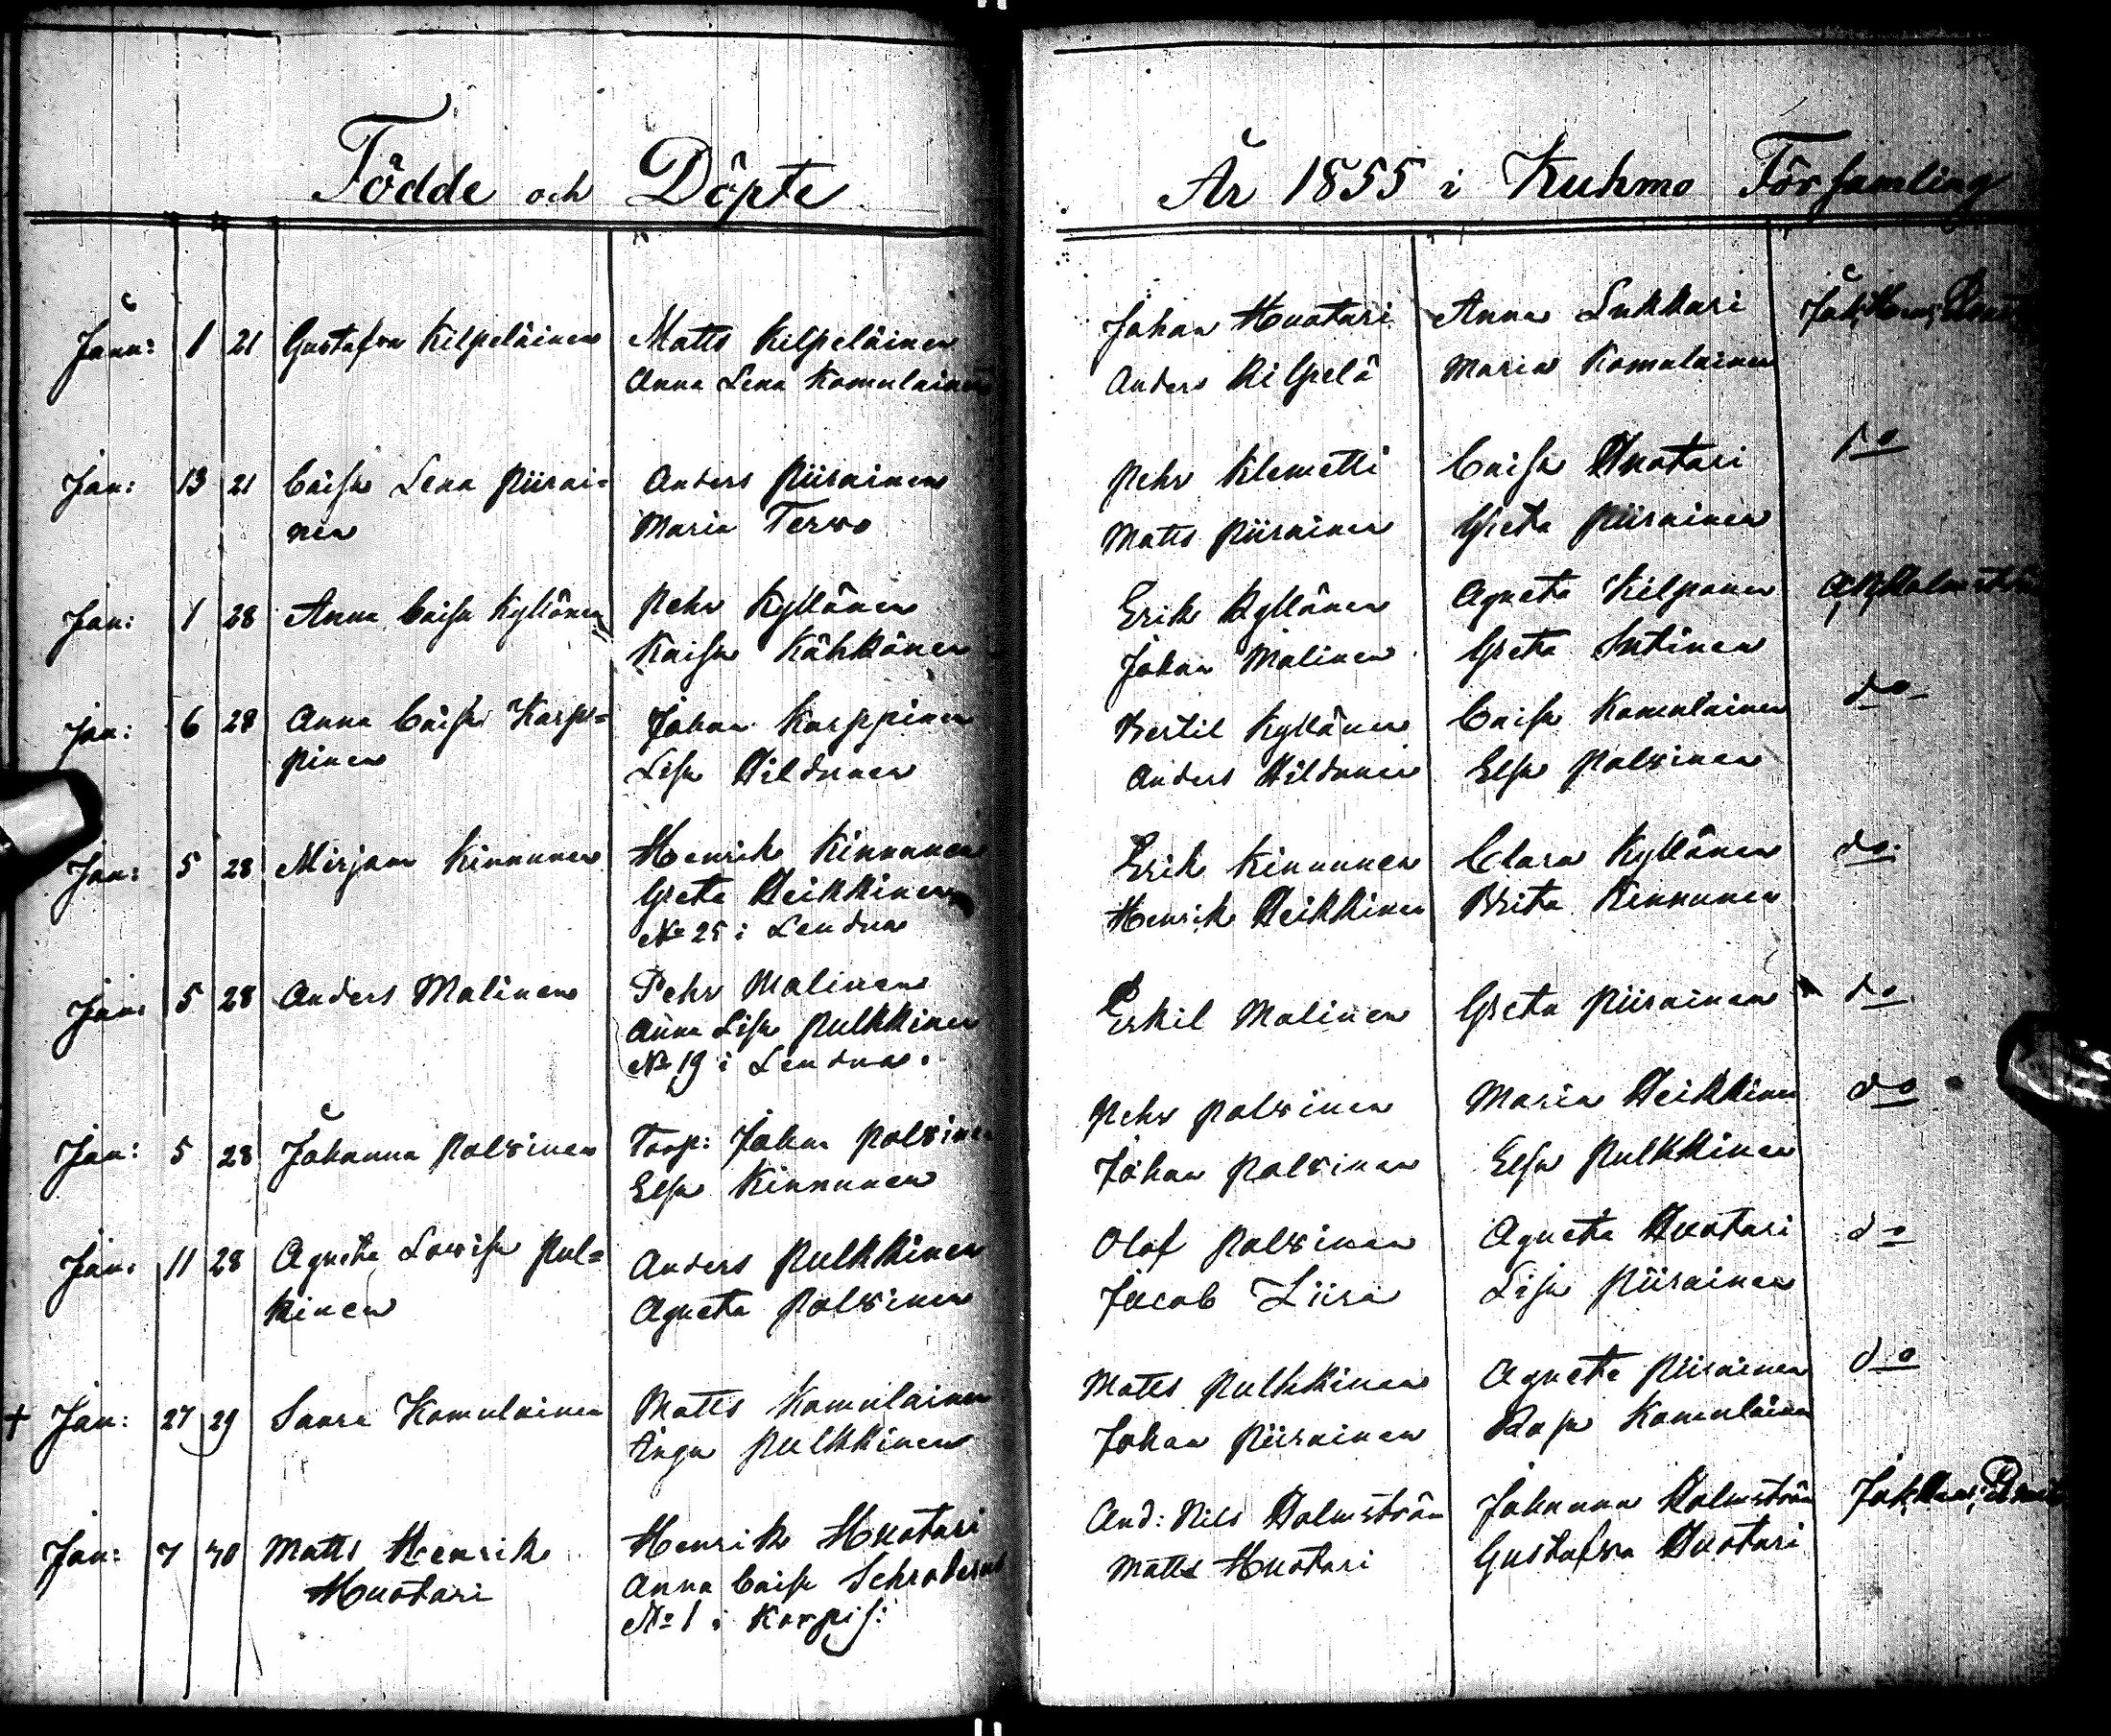 Födde och Döpte
År 1855 i Kuhmo Församling
Janu: 1 21 Gustafva Kilpeläinen Matts Kilpeläinen Johan Huotari Anna Lukkari
Anna Lena Komulainen Anders Kilpelä Maria Komulainen
Jan: 13 21 Caisa Lena Piirai= Anders Piirainen Pehr Klemetti Caisa Huotari do
nen Maria Tervo Matts Piirainen Greta Piirainen
Jan: 1 28 Anna Caisa Kyllönen Pehr Kyllönen Erik Kyllönen Agneta Kilponen
Kaisa Kähkönen Johan Malinen Greta
Jan: 6 28 Anna Caisa Karp= Johan Karppinen Bertil Kyllönen Caisa Komulainen do
pinen Lisa Hildunen Anders Hildunen Elsa Polvinen
Jan: 5 28 Mirjam Kinnunen Henrik Kinnunen Erik Kinnunen Clara Kyllönen do.
Greta Heikkinen Henrik Heikkinen Brita Kinnunen
No 25 i Lendua
Jan: 5 28 Anders Malinen Pehr Malinen Eskil Malinen Greta Piirainen do
Anna Lisa Pulkkinen
No 19 i Lendua.
Jan: 5 28 Johanna Polvinen Torp: Johan Polvinen Pehr Polvinen Maria Heikkinen do
Elsa Kinnunen Johan Polvinen Elsa Pulkkinen
Jan: 11 28 Agneta Lovisa Pul= Anders Pulkkinen Olof Polvinen Agneta Huotari do
kinen Agneta Polvinen Jacob Liira Lisa Piirainen
+ Jan: 27 29 Saara Komulainen Matts Komulainen Matts Pulkkinen Agneta Piirainen do
Inga Pulkkinen Johan Piirainen Rosa Komulainen
Jan: 7 30 Matts Henrik Henrik Huotari And: Nils Holmström Johanna Holmström
Huotari Anna Caisa Schroderus Matts Huotari Gustafva Huotari
No 1 i Korpis: